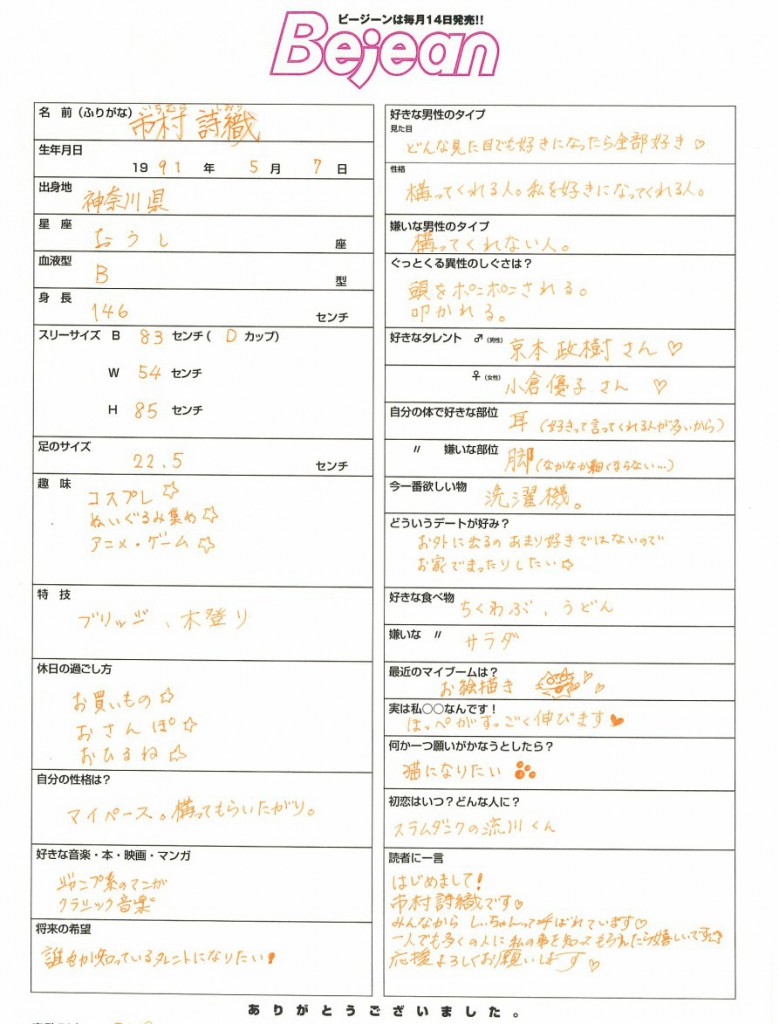 ビージーンは毎月14日発売!!
Bejean
名　前（ふりがな）
いちむら　しおり
市村 詩織
生年月日
19 91 年 5 月 7 日
出身地
神奈川県
星　座
おうし 座
血液型
B 型
身　長
146 センチ
スリーサイズ B 83 センチ( D カップ)
W 54 センチ
H 85 センチ
足のサイズ
22.5 センチ
趣　味
コスプレ☆
ぬいぐるみ集め☆
アニメ・ゲーム☆
特　技
ブリッジ、木登り
休日の過ごし方
お買いもの☆
おさんぽ☆
おひるね☆
自分の性格は？
マイペース。構ってもらいたがり。
好きな音楽・本・映画・マンガ
ジャンプ系のマンガ
クラシック音楽
将来の希望
誰もが知っているタレントになりたい!
好きな男性のタイプ
見た目
どんな見た目でも好きになったら全部好き♡
性格
構ってくれる人。私を好きになってくれる人。
嫌いな男性のタイプ
構ってくれない人。
ぐっとくる異性のしぐさは？
頭をポンポンされる。
叩かれる。
好きなタレント ♂(男性) 京本政樹さん♡
♀(女性) 小倉優子さん ♡
自分の体で好きな部位 耳(好きって言ってくれる人が多いから)
〃 嫌いな部位 脚(なかなか細くならない…)
今一番欲しい物 洗濯機。
どういうデートが好み？
お外に出るのあまり好きではないので
お家でまったりしたい☆
好きな食べ物 ちくわぶ、うどん
嫌いな 〃 サラダ
最近のマイブームは？
お絵描き
実は私○○なんです！
ほっぺがすっごく伸びます♥
何か一つ願いがかなうとしたら？
猫になりたい
初恋はいつ？どんな人に？
スラムダンクの流川くん
読者に一言
はじめまして!
市村詩織です♡
みんなから しぃちゃんって呼ばれています♡
一人でも多くの人に私の事を知ってもらえたら嬉しいです
応援よろしくお願いします♡
ありがとうございました。